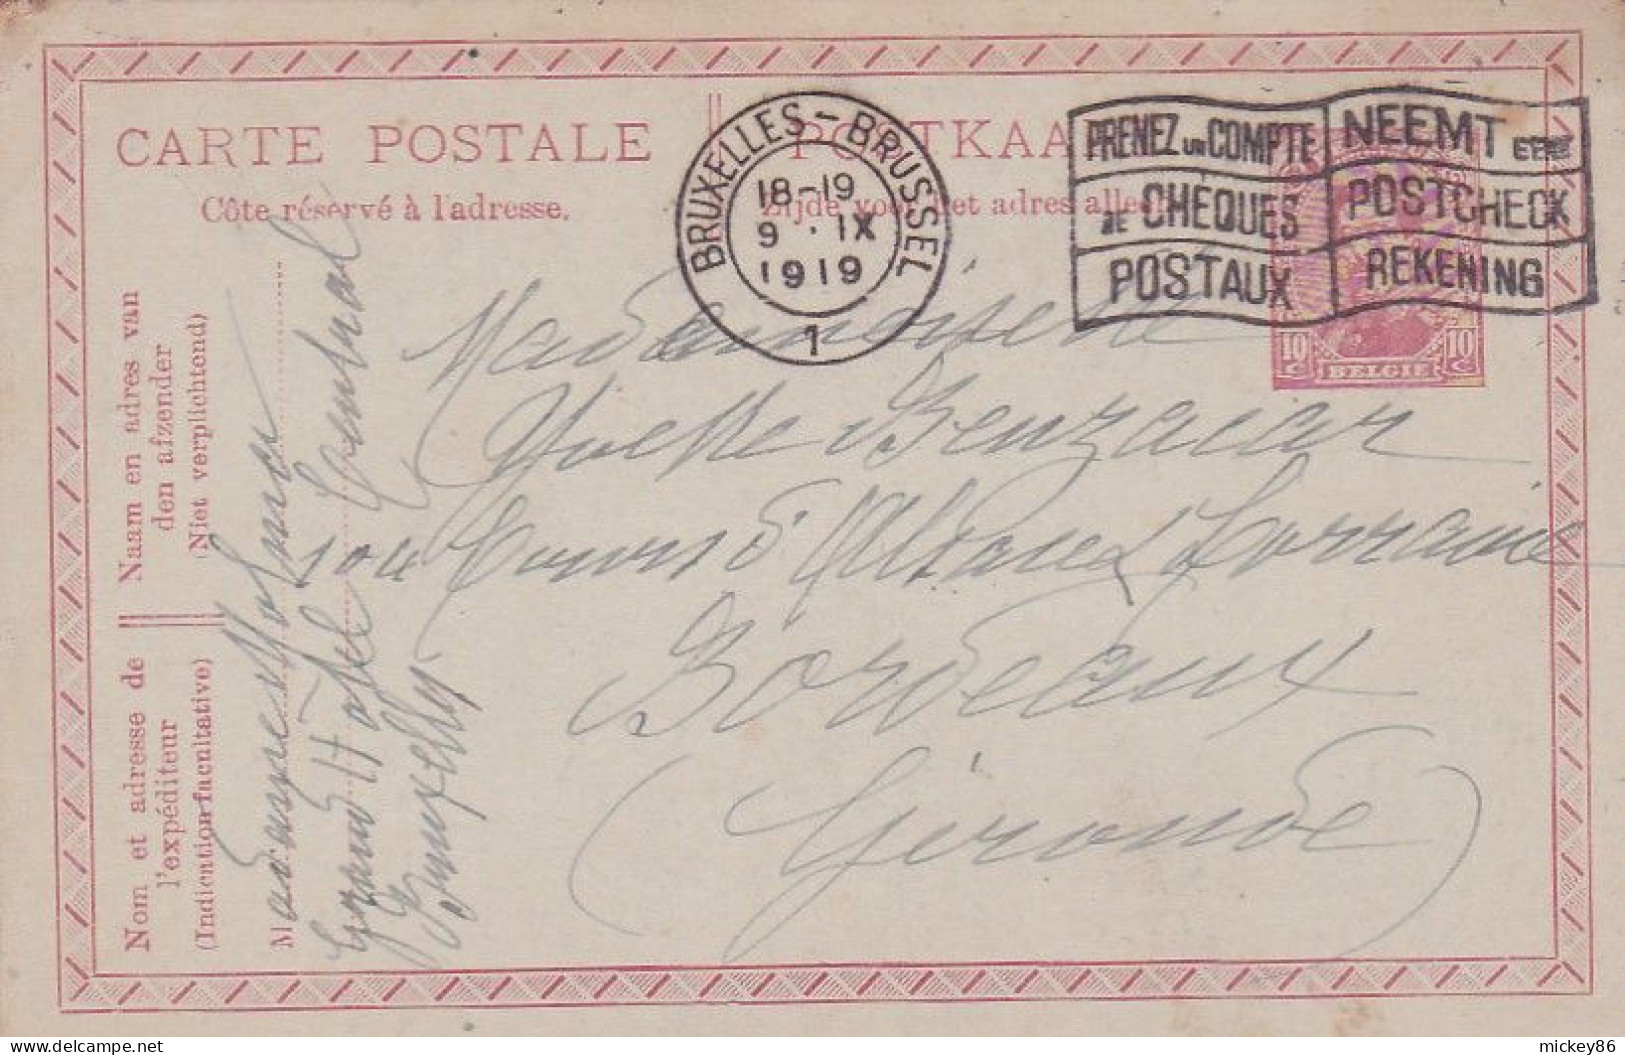 CARTE POSTALE
Côte réservé à l'adresse.
POSTKAA
Zijde voo et adres alleen
BRUXELLES - BRUSSEL
18-19
9 · IX
1919
1
PRENEZ UN COMPTE
DE CHÈQUES
POSTAUX
NEEMT EENE
POSTCHECK
REKENING
10 c
BELGIE
10 c
Mademoiselle
Yvette Benzacar
Cours d'Alsace Lorraine
Bordeaux
(Gironde)
Naam en adres van
den afzender
(Niet verplichtend)
Nom et adresse de
l'expéditeur
(Indication facultative)
M
Grand Hotel Central
Bruxelles
mickey86
www.delcampe.net